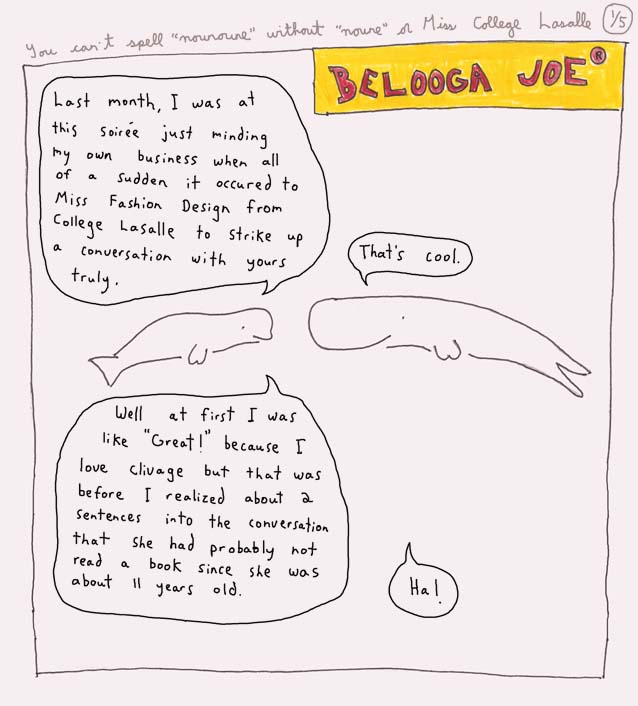 You can't spell "nounoune" without "noune" or Miss College Lasalle 1/5
BELOOGA JOE®
Last month, I was at
this soirée just minding
my own business when all
of a sudden it occured to
Miss Fashion Design from
College Lasalle to strike up
a conversation with yours
truly.
That's cool.
Well at first I was
like "Great!" because I
love clivage but that was
before I realized about 2
sentences into the conversation
that she had probably not
read a book since she was
about 11 years old.
Ha!